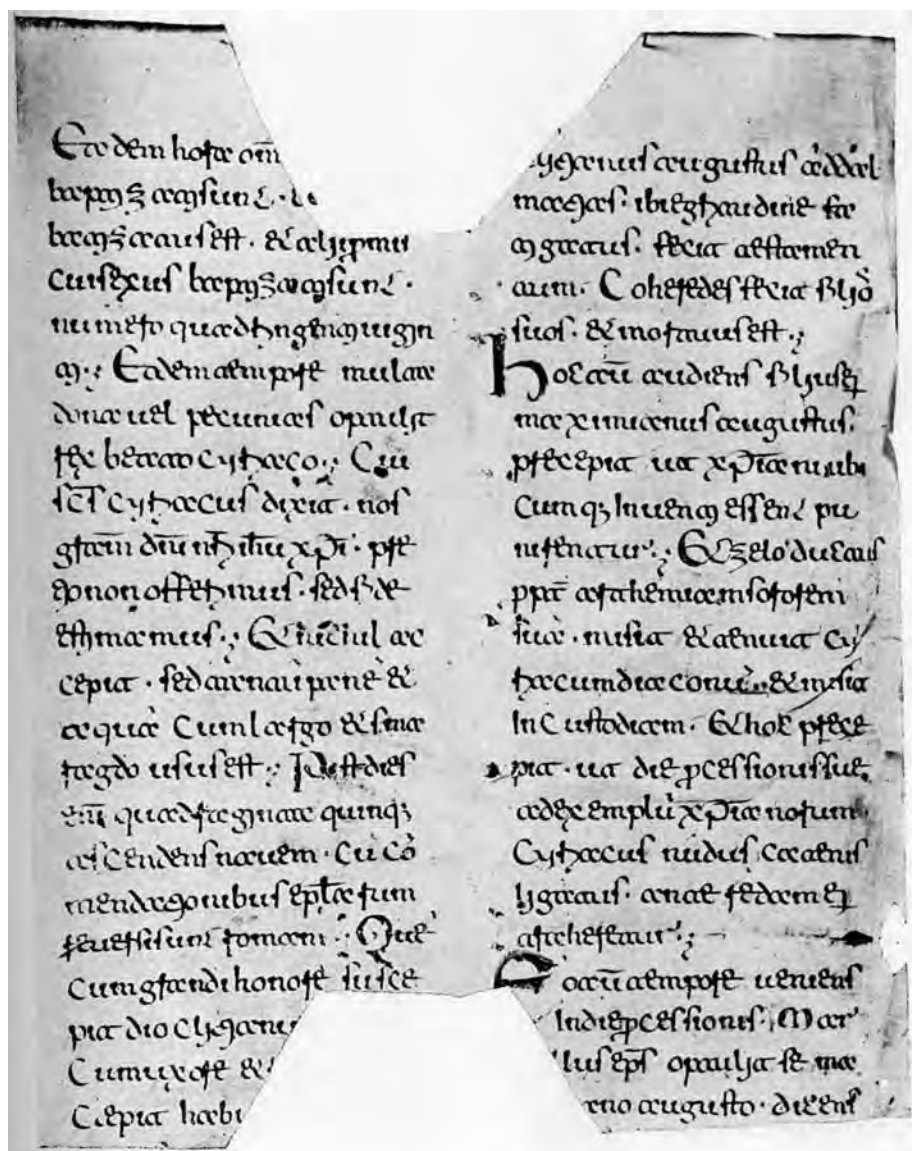 Eadem hora om̄
baptiz& ati sunt.
batiz& ata est. & alii promis
cui sexus baptizati sunt.
numero quadringenti uigin
ti. Eadem tempore multa
dona uel pecunias optulit
rex beato cyriaco. Cui
sc̄s Cyriacus dixit. nos
gratiam dn̄i nr̄i ih̄u xp̄i. pre
tio non offerimus. sed fide
estimamus. & nicil ac
cepit. sed tantū pane &
aqua Cum largo & sma
ragdo usus est. Post dies
quadraginta quinq;
ascendens nauem. Cū cō
mendationibus ep̄la rum
reuersi sunt romam. Que
Cum grandi honore susce
pit dioclitian
Cum uxore &
Cepit habi
litianus augustus addal
matias. ibi egritudine fa
tigatus. fecit testamen
tum. Coheredes fecit filiō
suos. & mortuus est.
Hoc aū audiens filius ei
maximianus augustus.
precepit ut xp̄iani ubi
Cumq; Inuenti essent pu
nirentur. & zelo ductus
ppt̄ artheniam sororem
suā. misit & tenuit Cy
riacum diaconū. & misit
In Custodiam. & hoc prece
pit. ut die pcessionis sue
ad exemplū xp̄ianorum
Cyriacus nudus catenis
ligatus. ante redam ei
traheretur.
Eo aū tempore ueniens
In die pcessionis. Mar
llus ep̄s optulit se ma
ano augusto. dicens